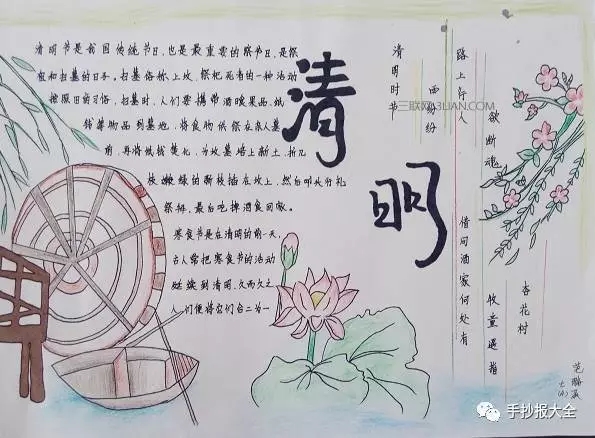 清明节是我国传统节日,也是最重要的祭节日,是祭
祖和扫墓的日子。扫墓俗称上坟,祭祀死者的一种活动
按照旧的习俗,扫墓时,人们要携带酒食果品、纸
钱等物品到墓地,将食物供祭在亲人墓
前,再将纸钱焚化,为坟墓培上新土,折几
枝嫩绿的新枝插在坟上,然后叩头行礼
祭拜,最后吃掉酒食回家。
寒食节是在清明的前一天,
古人常把寒食节的活动
延续到清明,久而久之
人们便将它们合二为一
清明
清明时节
雨纷纷
路上行人
欲断魂
借问酒家何处有
牧童遥指
杏花村
三联网3LIAN.COM
手抄报大全